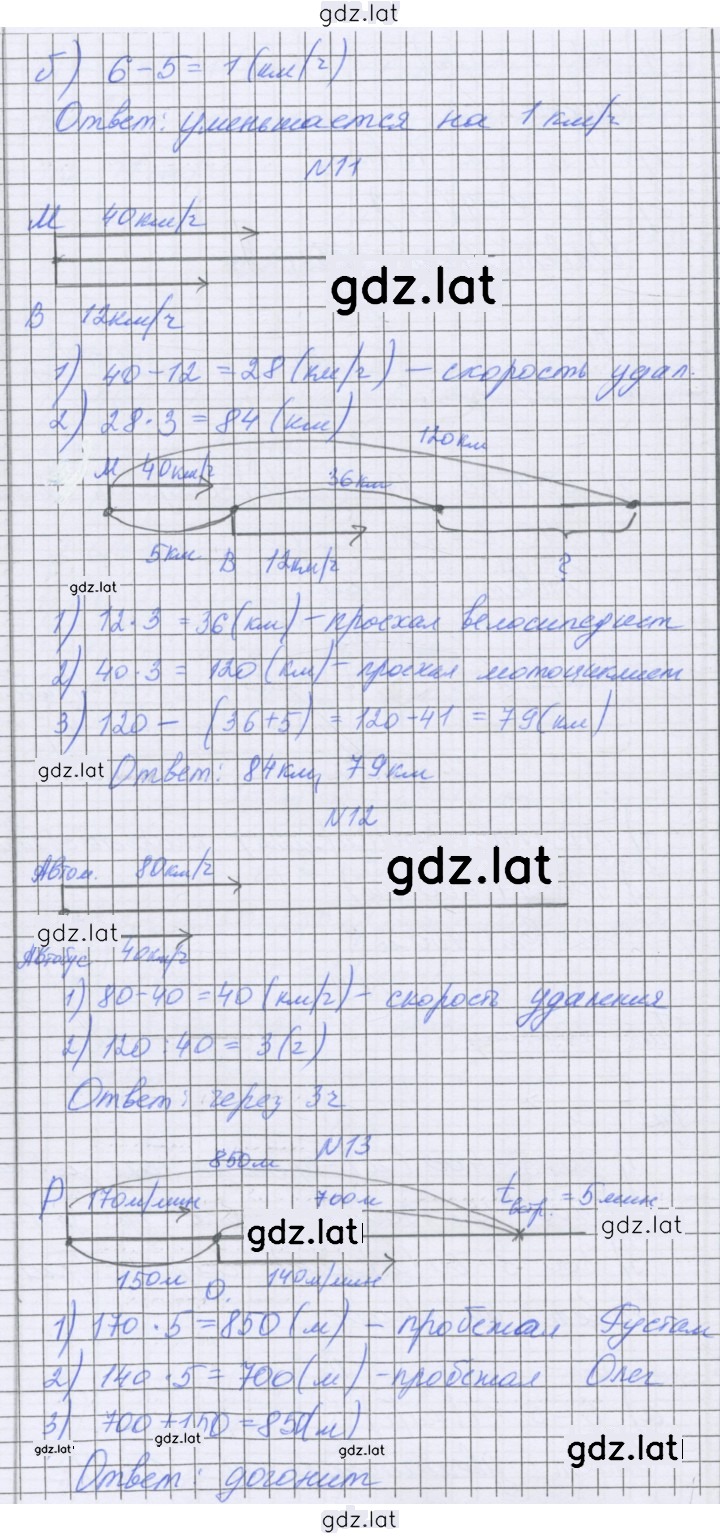 gdz.lat
б) 6 − 5 = 1 (км/ч)
Ответ: уменьшается на 1 км/ч
N11
М 40км/ч
gdz.lat
В 12км/ч
1) 40 − 12 = 28 (км/ч) – скорость удал.
2) 28 · 3 = 84 (км)
120км
М 40км/ч
36км
5км В 12км/ч ?
gdz.lat
1) 12 · 3 = 36 (км) – проехал велосипедист
2) 40 · 3 = 120 (км) – проехал мотоциклист
3) 120 − (36+5) = 120−41 = 79 (км)
gdz.lat Ответ: 84км, 79км
N12
Автом. 80км/ч
gdz.lat
gdz.lat
Автобус 40км/ч
1) 80−40 = 40 (км/ч) – скорость удаления
2) 120 : 40 = 3 (ч)
Ответ: через 3ч
N13
850м
Р 170м/мин 700м tвстр. = 5мин
gdz.lat gdz.lat
150м О. 140м/мин
1) 170 · 5 = 850 (м) – пробежал Рустам
2) 140 · 5 = 700 (м) – пробежал Олег
3) 700 + 150 = 850 (м)
gdz.lat gdz.lat gdz.lat gdz.lat
Ответ: догонит
gdz.lat